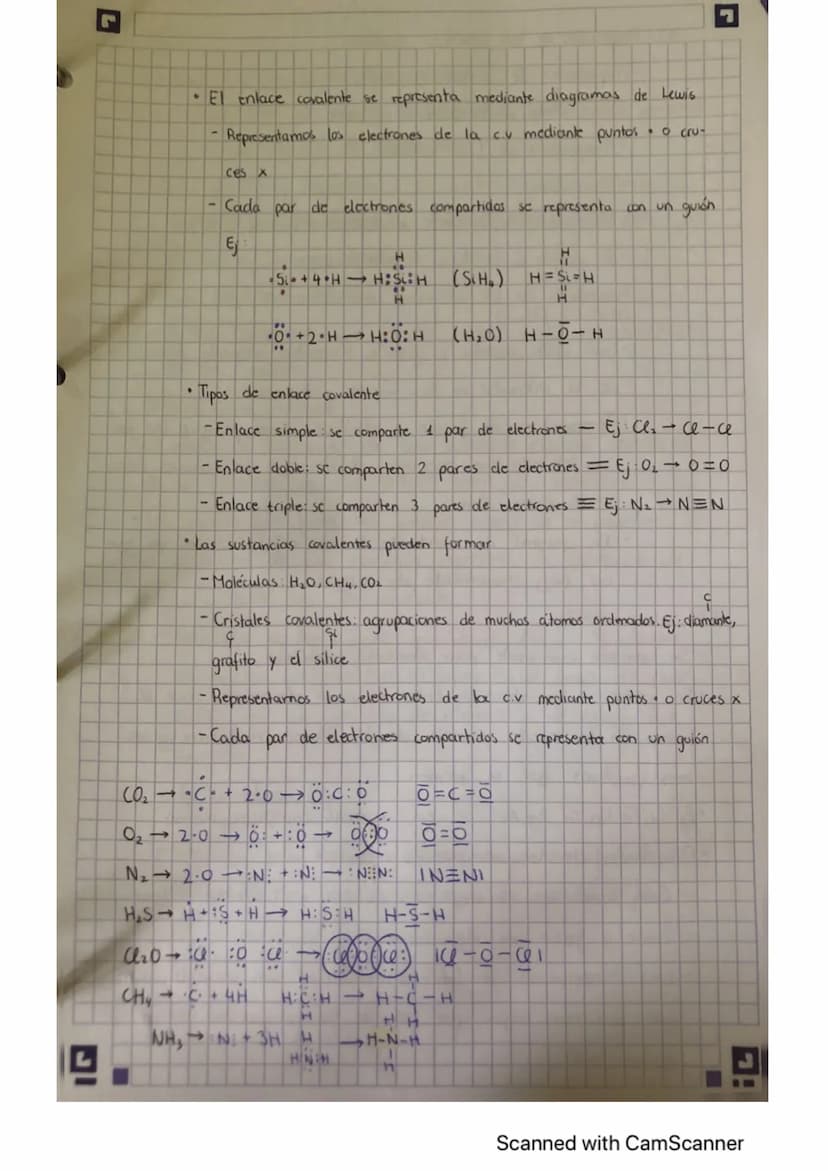 • El enlace covalente se representa mediante diagramas de Lewis
- Representamos los electrones de la c.v mediante puntos • o cru-
ces x
- Cada par de electrones compartidos se representa con un guión
Ej:
·Si· + 4·H → H:Si:H (SiH₄) H=Si=H
H H
H H
·Ö· + 2·H → H:Ö:H (H₂O) H-O-H
• Tipos de enlace covalente
- Enlace simple: se comparte 1 par de electrones — Ej: Cl₂ → Cl-Cl
- Enlace doble: se comparten 2 pares de electrones = Ej: O₂ → O=O
- Enlace triple: se comparten 3 pares de electrones ≡ Ej: N₂ → N≡N
• Las sustancias covalentes pueden formar
- Moléculas: H₂O, CH₄, CO₂
- Cristales covalentes: agrupaciones de muchos átomos ordenados. Ej: diamante,
grafito y el sílice
- Representamos los electrones de la c.v mediante puntos • o cruces x
- Cada par de electrones compartidos se representa con un guión
CO₂ → ·C· + 2·O → Ö:C:Ö O=C=O
O₂ → 2·O → Ö: + :Ö → O=O
N₂ → 2·O → :N: + :N: → :N⋮⋮N: |N≡N|
H₂S → H + :S + H → H:S:H H-S-H
Cl₂O → :Cl· :O :Cl → Cl O Cl |Cl-O-Cl|
CH₄ → ·C· + 4H H:C:H → H-C-H
H H
H H
NH₃ → :N: + 3H H:N:H → H-N-H
H H
H
Scanned with CamScanner